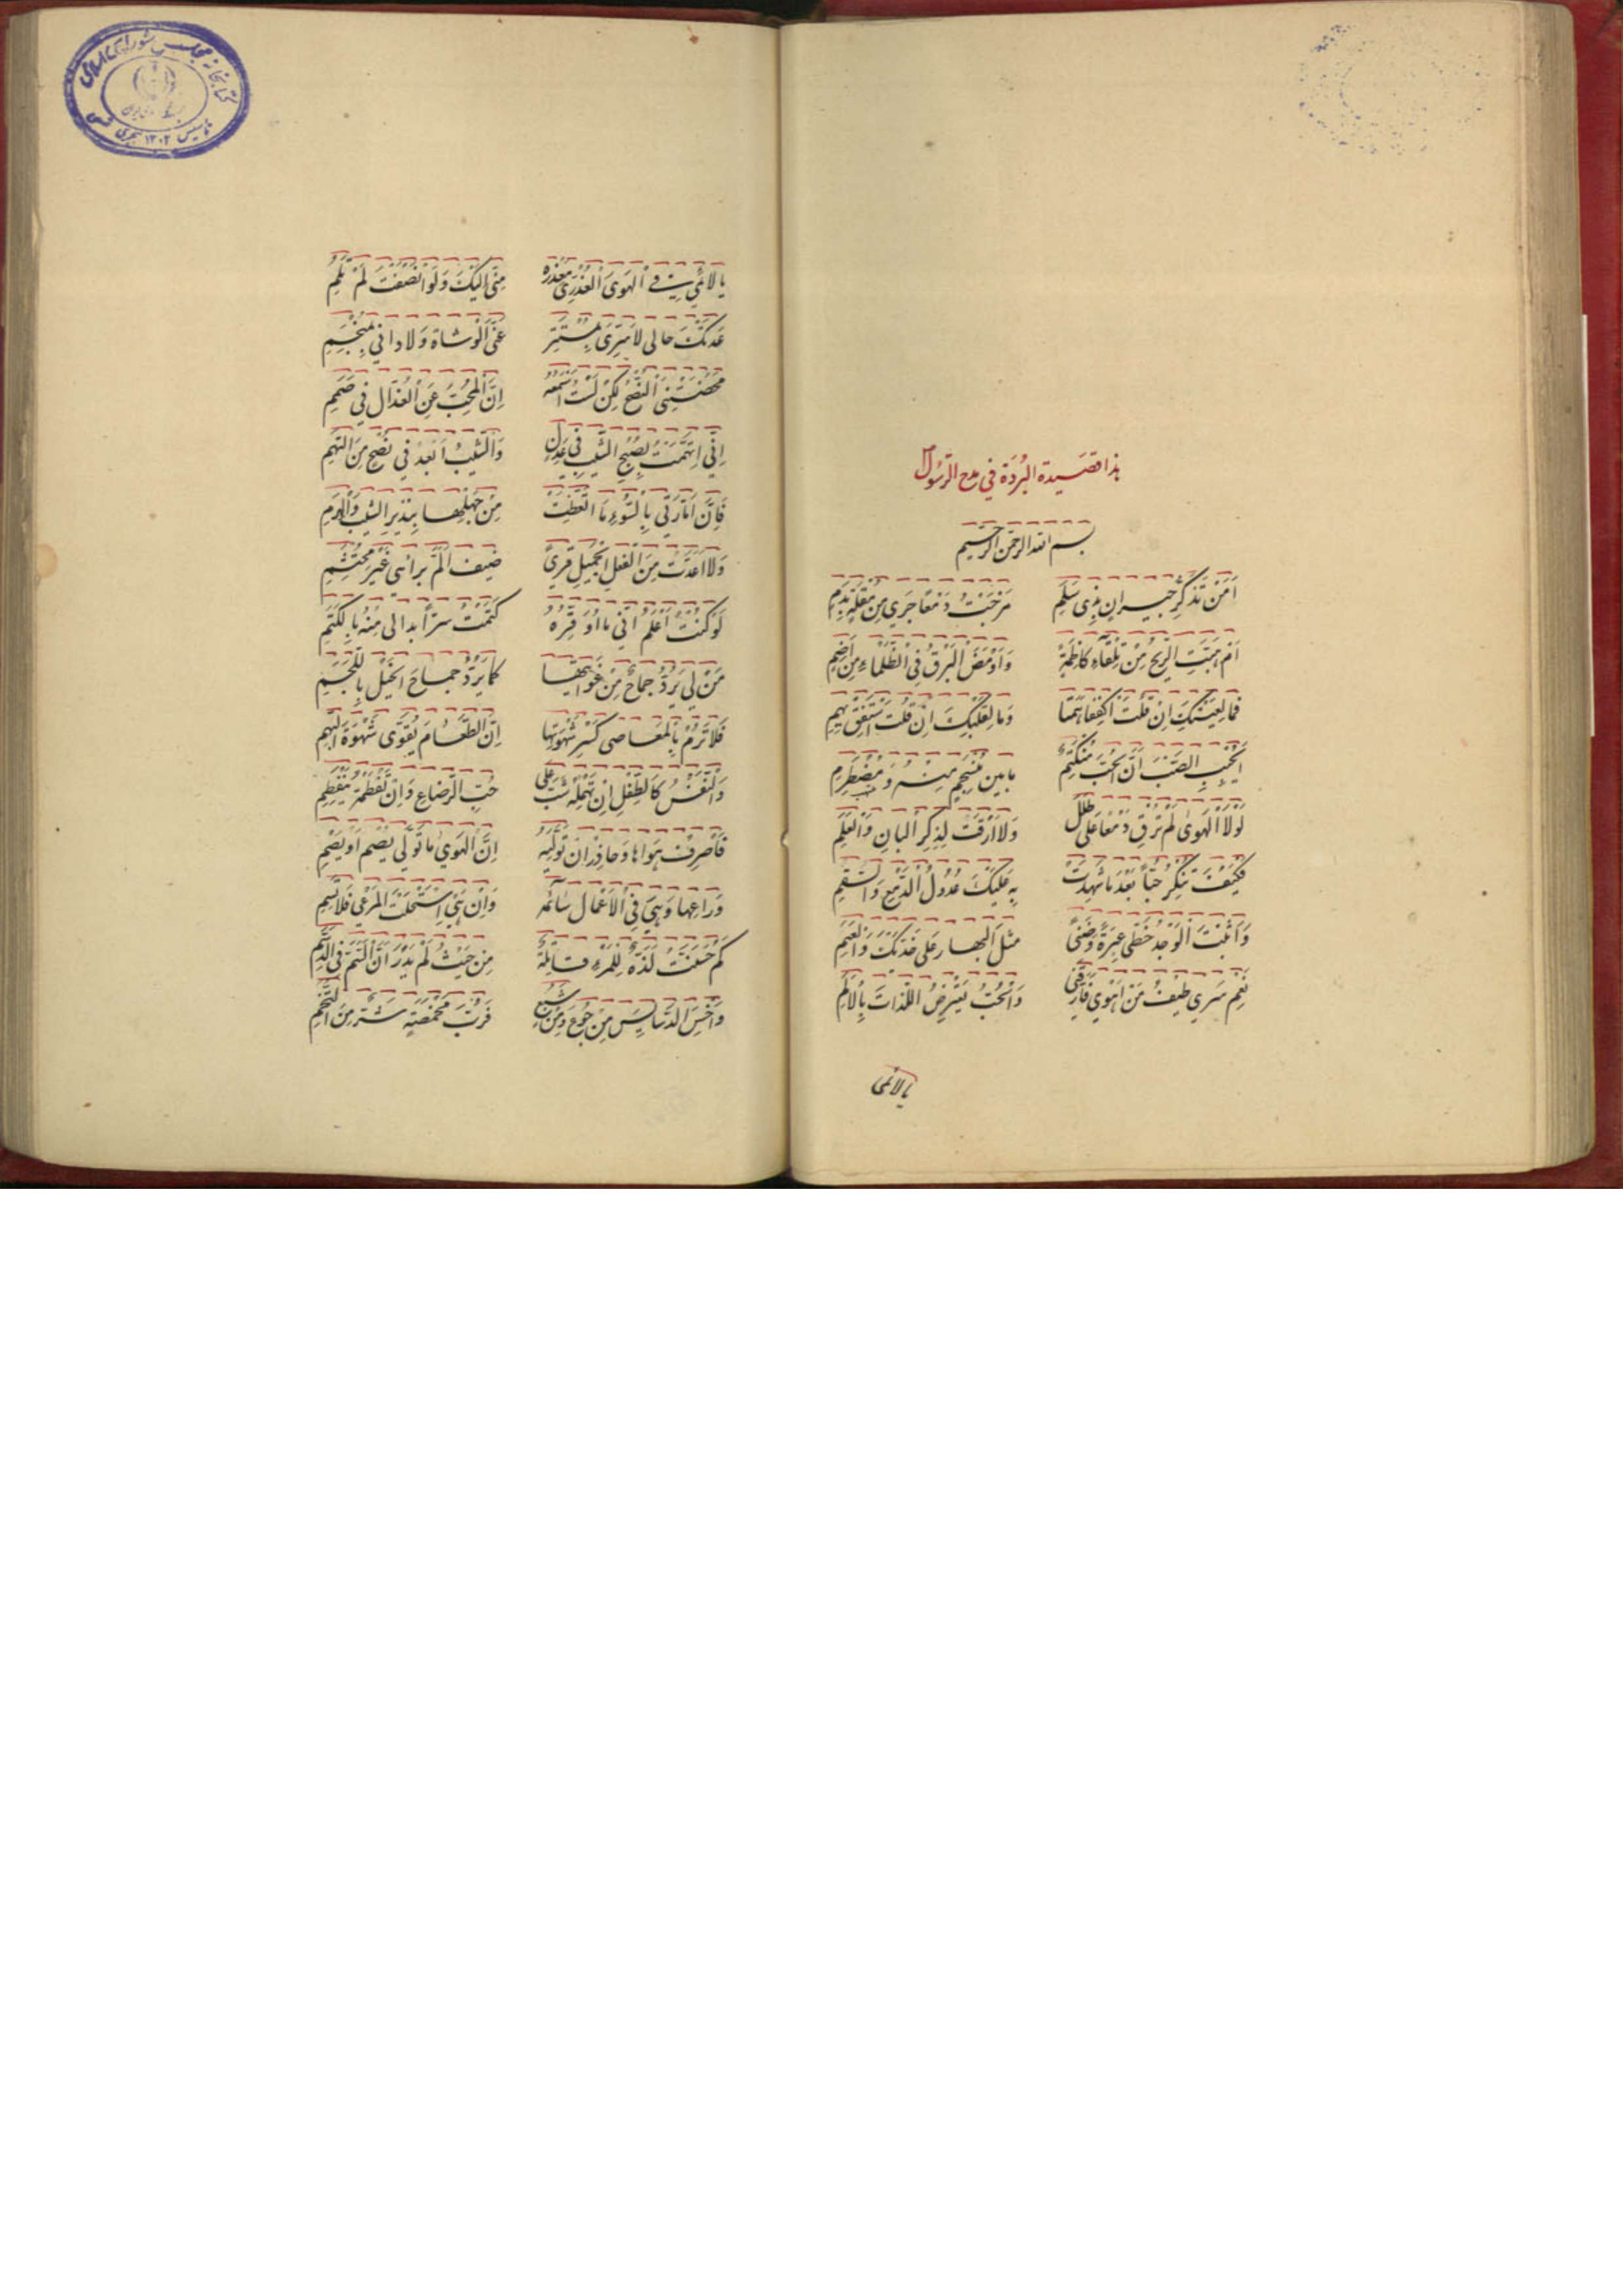 هذا قصيدة البُردَة في مدح الرّسُول
بسم الله الرحمن الرحيم
اَمِنْ تَذَكُّرِ جيرانٍ بِذِى سَلَمِ مَزَجْتَ دَمْعًا جَرى مِنْ مُقْلَةٍ بِدَمِ
اَمْ هَبَّتِ الرِّيحُ مِنْ تِلْقاءِ كاظِمَةٍ وَاَوْمَضَ البَرْقُ فِى الظَّلْماءِ مِنْ اِضَمِ
فَما لِعَيْنَيْكَ اِنْ قُلْتَ اكْفُفا هَمَتا وَما لِقَلْبِكَ اِنْ قُلْتَ اسْتَفِقْ يَهِمِ
اَيَحْسَبُ الصَّبُّ اَنَّ الحُبَّ مُنْكَتِمٌ ما بين مُنْسَجِمٍ مِنْهُ وَمُضْطَرِمِ
لَوْلَا الْهَوىٰ لَمْ تُرِقْ دَمْعًا عَلى طَلَلٍ وَلا اَرِقْتَ لِذِكْرِ البانِ وَالعَلَمِ
فَكَيْفَ تُنْكِرُ حُبًّا بَعْدَ ما شَهِدَتْ بِهِ عَلَيْكَ عُدُولُ الدَّمْعِ وَالسَّقَمِ
وَاَثْبَتَ الْوَجْدُ خَطَّى عَبْرَةٍ وَضَنًى مثلَ البهار عَلى خَدَّيْكَ وَالعَنَمِ
نَعَم سَرى طَيْفُ مَنْ اَهْوى فَاَرَّقَنى وَالْحُبُّ يَعْتَرِضُ اللَّذاتَ بِالاَلَمِ
يا لائمى
يا لائمي في الهَوىَ العُذْرِىّ مَعْذِرَةً مِنّى اِلَيْكَ وَلَوْ اَنْصَفْتَ لَمْ تَلُمِ
عَدَتْكَ حالى لا سِرّى بِمُسْتَتِرٍ عَنِ الْوُشاة وَلا دائي بِمُنْحَسِمِ
مَحَضْتَنِى النُّصْحَ لكِنْ لَسْتُ اَسْمَعُهُ اِنَّ المُحِبَّ عَنِ العُذّال في صَمَمِ
اِنّى اتَّهَمْتُ نَصِيحَ الشَّيْبِ في عَذَلٍ وَالشَّيْبُ اَبْعَدُ في نُصْحٍ مِنَ التُّهَمِ
فَاِنَّ اَمّارَتى بِالسُّوءِ مَا اتَّعَظَتْ مِنْ جَهْلِها بِنَذِيرِ الشَّيْبِ وَالهَرَمِ
وَلا اَعَدَّتْ مِنَ الْفِعْلِ الجَمِيلِ قِرىً ضيفٍ اَلَمَّ بِراْسى غَيْرَ مُحْتَشِمِ
لَوْ كُنْتُ اَعْلَمُ اَنّى ما اُوَقِّرُهُ كَتَمْتُ سِرّاً بدا لى مِنْهُ بِالكَتَمِ
مَنْ لى بِرَدِّ جِماحٍ مِنْ غَوايَتِها كَما يُرَدُّ جِماحُ الخَيْلِ بِاللُّجُمِ
فَلا تَرُمْ بِالْمَعاصى كَسْرَ شَهْوَتِها اِنَّ الطَّعامَ يُقَوّى شَهْوَةَ النَّهِمِ
وَالنَّفْسُ كَالطِّفْلِ اِنْ تُهْمِلْهُ شَبَّ عَلى حُبِّ الرَّضاعِ وَاِنْ تَفْطِمْهُ يَنْفَطِمِ
فَاصْرِفْ هَواها وَحاذِرْ اَنْ تُوَلِّيَهُ اِنَّ الْهَوى ما تَوَلّى يُصْمِ اَوْ يَصِمِ
وَراعِها وَهِيَ فِى الاَعْمالِ سائِمَةٌ وَاِنْ هِىَ اسْتَحْلَتِ المَرْعى فَلا تُسِمِ
كَمْ حَسَّنَتْ لَذَّةً لِلْمَرْءِ قاتِلَةً مِنْ حَيْثُ لَمْ يَدْرِ اَنَّ السَّمَّ فِى الدَّسَمِ
وَاخْشَ الدَّسايِسَ مِنْ جُوعٍ وَمِنْ شِبَعٍ فَرُبَّ مَخْمَصَةٍ شَرٌّ مِنَ التُّخَمِ
کتابخانه مجلس شورای اسلامی
تاسیس ۱۳۰۲ هجری شمسی